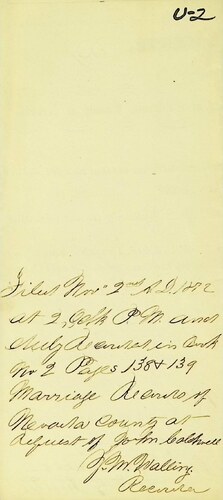 U-2
Filed Nov 2nd A.D. 18
at 2, O'clk P.M. and
duly Recorded in Book
No 2 Pages 138 & 139
Marriage Records of
Nevada County at
request of John Caldwell
Walling
Recorder